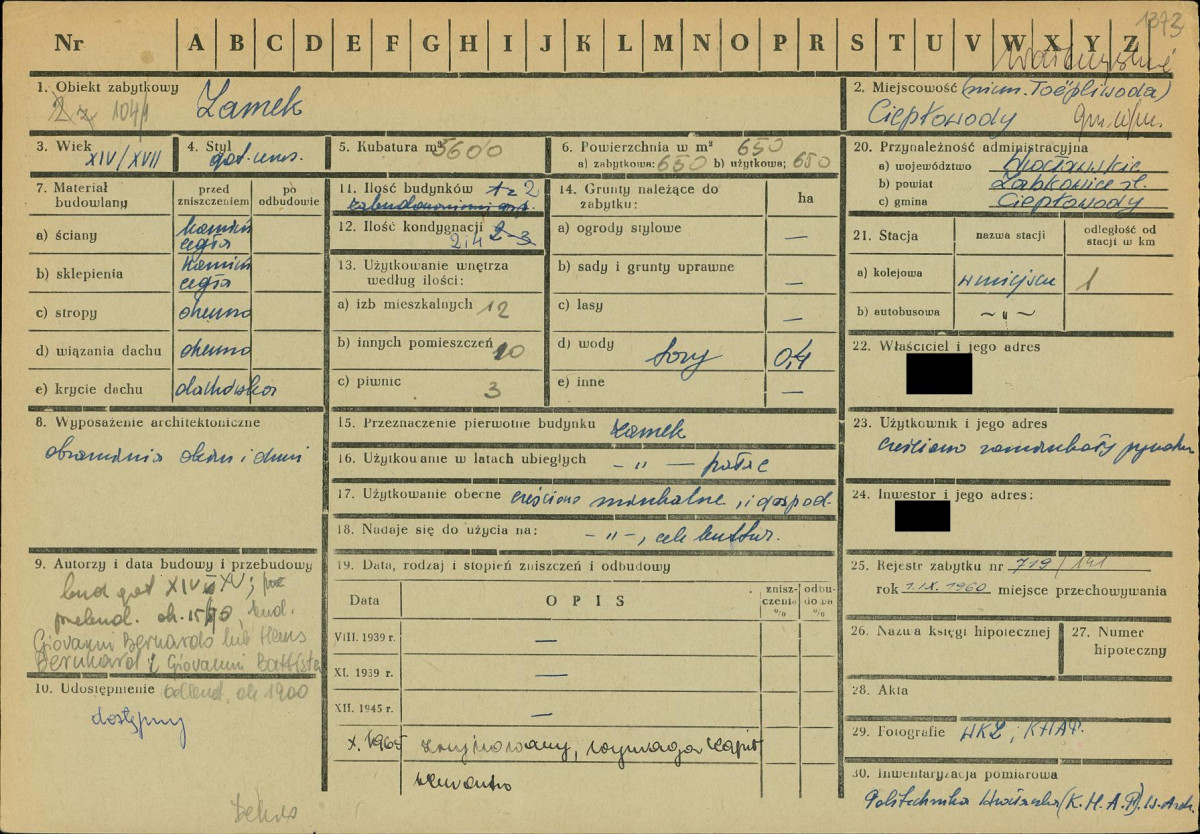 1373
Nr A B C D E F G H I J K L M N O P R S T U V W X Y Z
1. Obiekt zabytkowy
104/1 Zamek
2. Miejscowość (niem. Toëpliwoda)
Ciepłowody
3. Wiek
XIV/XVII
4. Styl
got. renes.
5. Kubatura m³ 5600
6. Powierzchnia w m² 650
a) zabytkowa: 650 b) użytkowa: 650
20. Przynależność administracyjna
a) województwo Wrocławskie
b) powiat Ząbkowice śl.
c) gmina Ciepłowody
7. Materiał budowlany
przed zniszczeniem
po odbudowie
a) ściany kamień cegła
b) sklepienia kamień cegła
c) stropy drewno
d) wiązania dachu drewno
e) krycie dachu dachówka
8. Wyposażenie architektoniczne
obramienia okien i drzwi
9. Autorzy i data budowy i przebudowy
bud. got XIV XV;
przebud. ok. 15 bud.
Giovanni Bernardo lub Hans
Bernhard i Giovanni Battista
10. Udostępnienie ok 1900
dostępny
11. Ilość budynków 1 z 2
zabudowaniami gosp.
12. Ilość kondygnacji 2-3
2,4
13. Użytkowanie wnętrza
według ilości:
a) izb mieszkalnych 12
b) innych pomieszczeń 10
c) piwnic 3
14. Grunty należące do
zabytku:
ha
a) ogrody stylowe —
b) sady i grunty uprawne —
c) lasy —
d) wody fosy 0,4
e) inne —
15. Przeznaczenie pierwotne budynku zamek
16. Użytkowanie w latach ubiegłych - " — pałac
17. Użytkowanie obecne częściowo mieszkalne, i gospod.
18. Nadaje się do użycia na: - " -, cele kultur.
19. Data, rodzaj i stopień zniszczeń i odbudowy
Data
OPIS
znisz-
czenia
%
odbu-
dowa
%
VIII. 1939 r. —
XI. 1939 r. —
XII. 1945 r. —
X. 1965 zrujnowany, wymaga kapit
remontu
21. Stacja
nazwa stacji
odległość od
stacji w km
a) kolejowa w miejscu 1
b) autobusowa ~ " ~
22. Właściciel i jego adres
23. Użytkownik i jego adres
częściowo zamieszkały prywatnie
24. Inwestor i jego adres:
25. Rejestr zabytku nr 719/141
rok 1.IX.1960 miejsce przechowywania
26. Nazwa księgi hipotecznej
27. Numer
hipoteczny
28. Akta
29. Fotografie WKZ; KHAP.
30. Inwentaryzacja pomiarowa
Politechnika Wrocławska (K.H.A.P.) W. Arch.